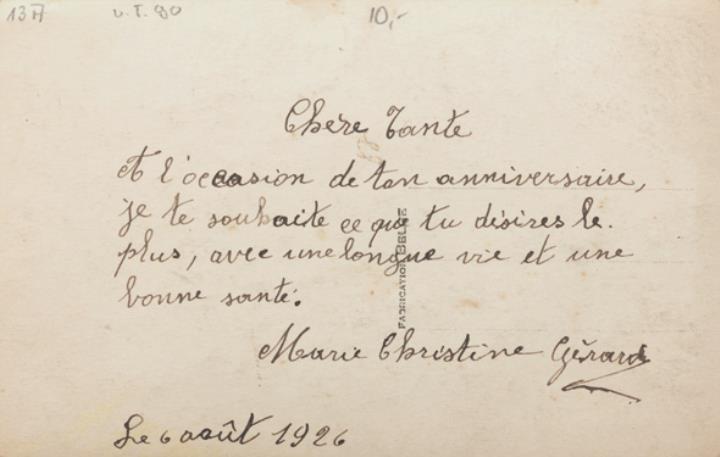 13 A v. T. 80 10,-
Chère Tante
A l'occasion de ton anniversaire,
je te souhaite ce que tu désires le
plus, avec une longue vie et une
bonne santé.
FABRICATION BELGE
Marie Christine Gérard
Le 6 août 1926